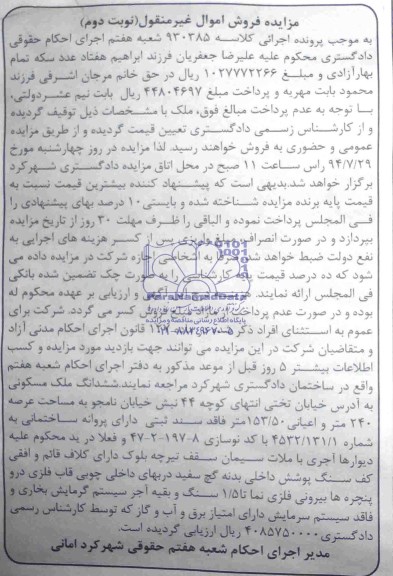 مزایده فروش اموال غیرمنقول(نوبت دوم)
به موجب پرونده اجرائی کلاسه ۹۳۰۳۸۵ شعبه هفتم اجرای احکام حقوقی
دادگستری محکوم علیه علیرضا جعفریان فرزند ابراهیم هفتاد عدد سکه تمام
بهارآزادی و مبلغ ۱۰۲۷۷۷۲۲۶۶ ریال در حق خانم مرجان اشرفی فرزند
محمود بابت مهریه و پرداخت مبلغ ۴۴۸۰۴۶۹۷ ریال بابت نیم عشردولتی،
با توجه به عدم پرداخت مبالغ فوق، ملک با مشخصات ذیل توقیف گردیده
و از کارشناس رسمی دادگستری تعیین قیمت گردیده و از طریق مزایده
عمومی و حضوری به فروش خواهند رسید. لذا مزایده در روز چهارشنبه مورخ
۹۴/۷/۲۹ راس ساعت ۱۱ صبح در محل اتاق مزایده دادگستری شهرکرد
برگزار خواهد شد.بدیهی است که پیشنهاد کننده بیشترین قیمت نسبت به
قیمت پایه برنده مزایده شناخته شده و بایستی۱۰ درصد بهای پیشنهادی را
فی المجلس پرداخت نموده و الباقی را ظرف مهلت ۳۰ روز از تاریخ مزایده
بپردازد و در صورت انصراف مبلغ واریزی پس از کسر هزینه های اجرایی به
نفع دولت ضبط خواهد شد. به اشخاصی اجازه شرکت در مزایده داده می
شود که ده درصد قیمت پایه کارشناسی را به صورت چک تضمین شده بانکی
فی المجلس ارائه نمایند. آگهی و ارزیابی بر عهده محکوم له
بوده و در صورت عدم پرداخت کسر می گردد. شرکت برای
عموم به استثنای افراد ذکر شده قانون اجرای احکام مدنی آزاد
و متقاضیان شرکت در این مزایده می توانند جهت بازدید مورد مزایده و کسب
اطلاعات بیشتر ۵ روز قبل از موعد مذکور به دفتر اجرای احکام شعبه هفتم
واقع در ساختمان دادگستری شهرکرد مراجعه نمایند.ششدانگ ملک مسکونی
به آدرس خیابان تختی انتهای کوچه ۴۴ نبش خیابان نامجو به مساحت عرصه
۲۴۰ متر و اعیانی ۱۵۳/۵۰متر فاقد سند ثبتی دارای پروانه ساختمانی به
شماره ۴۵۳۲/۱۳۱/۱ با کد نوسازی ۸-۱۹۷-۲-۴۷ و فعلا در ید محکوم علیه
دیوارها آجری با ملات سیمان سقف تیرچه بلوک دارای کلاف قائم و افقی
کف سنگ پوشش داخلی بدنه گچ سفید دربهای داخلی چوبی قاب فلزی درو
پنجره ها بیرونی فلزی نما تا۱/۵ سنگ و بقیه آجر سیستم گرمایش بخاری و
فاقد سیستم سرمایش دارای امتیاز برق و آب و گاز که توسط کارشناس رسمی
دادگستری ۴۰۸۵۷۵۰۰۰۰ ریال ارزیابی گردیده است.
مدیر اجرای احکام شعبه هفتم حقوقی شهرکرد امانی